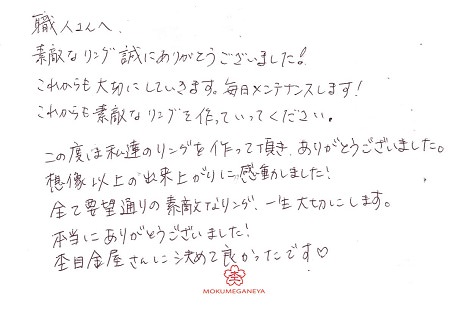 職人さんへ
素敵なリング誠にありがとうございました!
これからも大切にしていきます。毎日メンテナンスします!
これからも素敵なリングを作っていってください。
この度は私達のリングを作って頂き、ありがとうございました。
想像以上の出来上がりに感動しました!
全て要望通りの素敵なリング、一生大切にします。
本当にありがとうございました!
杢目金屋さんに決めて良かったです♡
杢
MOKUMEGANEYA